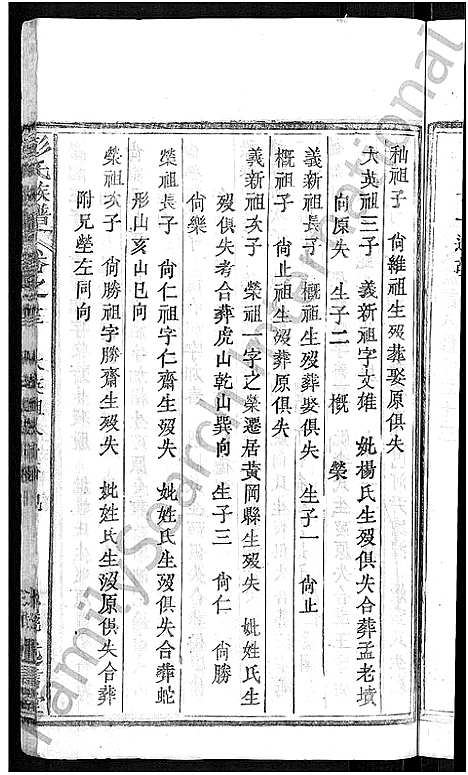 秈祖子 尙維祖生歿葬娶原俱失
大英祖三子 義新祖字文雄 妣楊氏生歿俱失合葬孟老墳
向原失 生子二 概 榮
義新祖長子 概祖生歿葬娶俱失 生子一 尙止
概祖子 尙止祖生歿葬原俱失
義新祖次子 榮祖一字之榮遷居黃岡縣生歿失 妣姓氏生
歿俱失考合葬虎山乾山巽向 生子三 尙仁 尙勝
尙樂
榮祖長子 尙仁祖字仁齋生歿失 妣姓氏生歿俱失合葬蛇
形山亥山巳向
榮祖次子 尙勝祖字勝齋生歿失 妣姓氏生歿原俱失合葬
附兄塋左同向
彭氏族譜
FamilySearch International